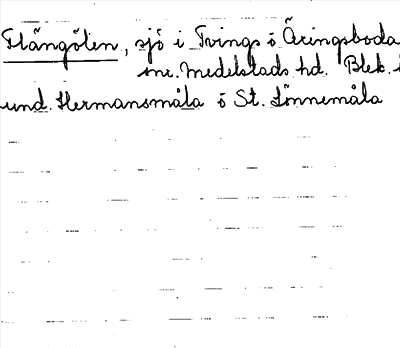 Flängölen, sjö i Tvings o Äringsboda
snr. Medelstads hd. Blek.
und. Hermansmåla o St. Lönnemåla